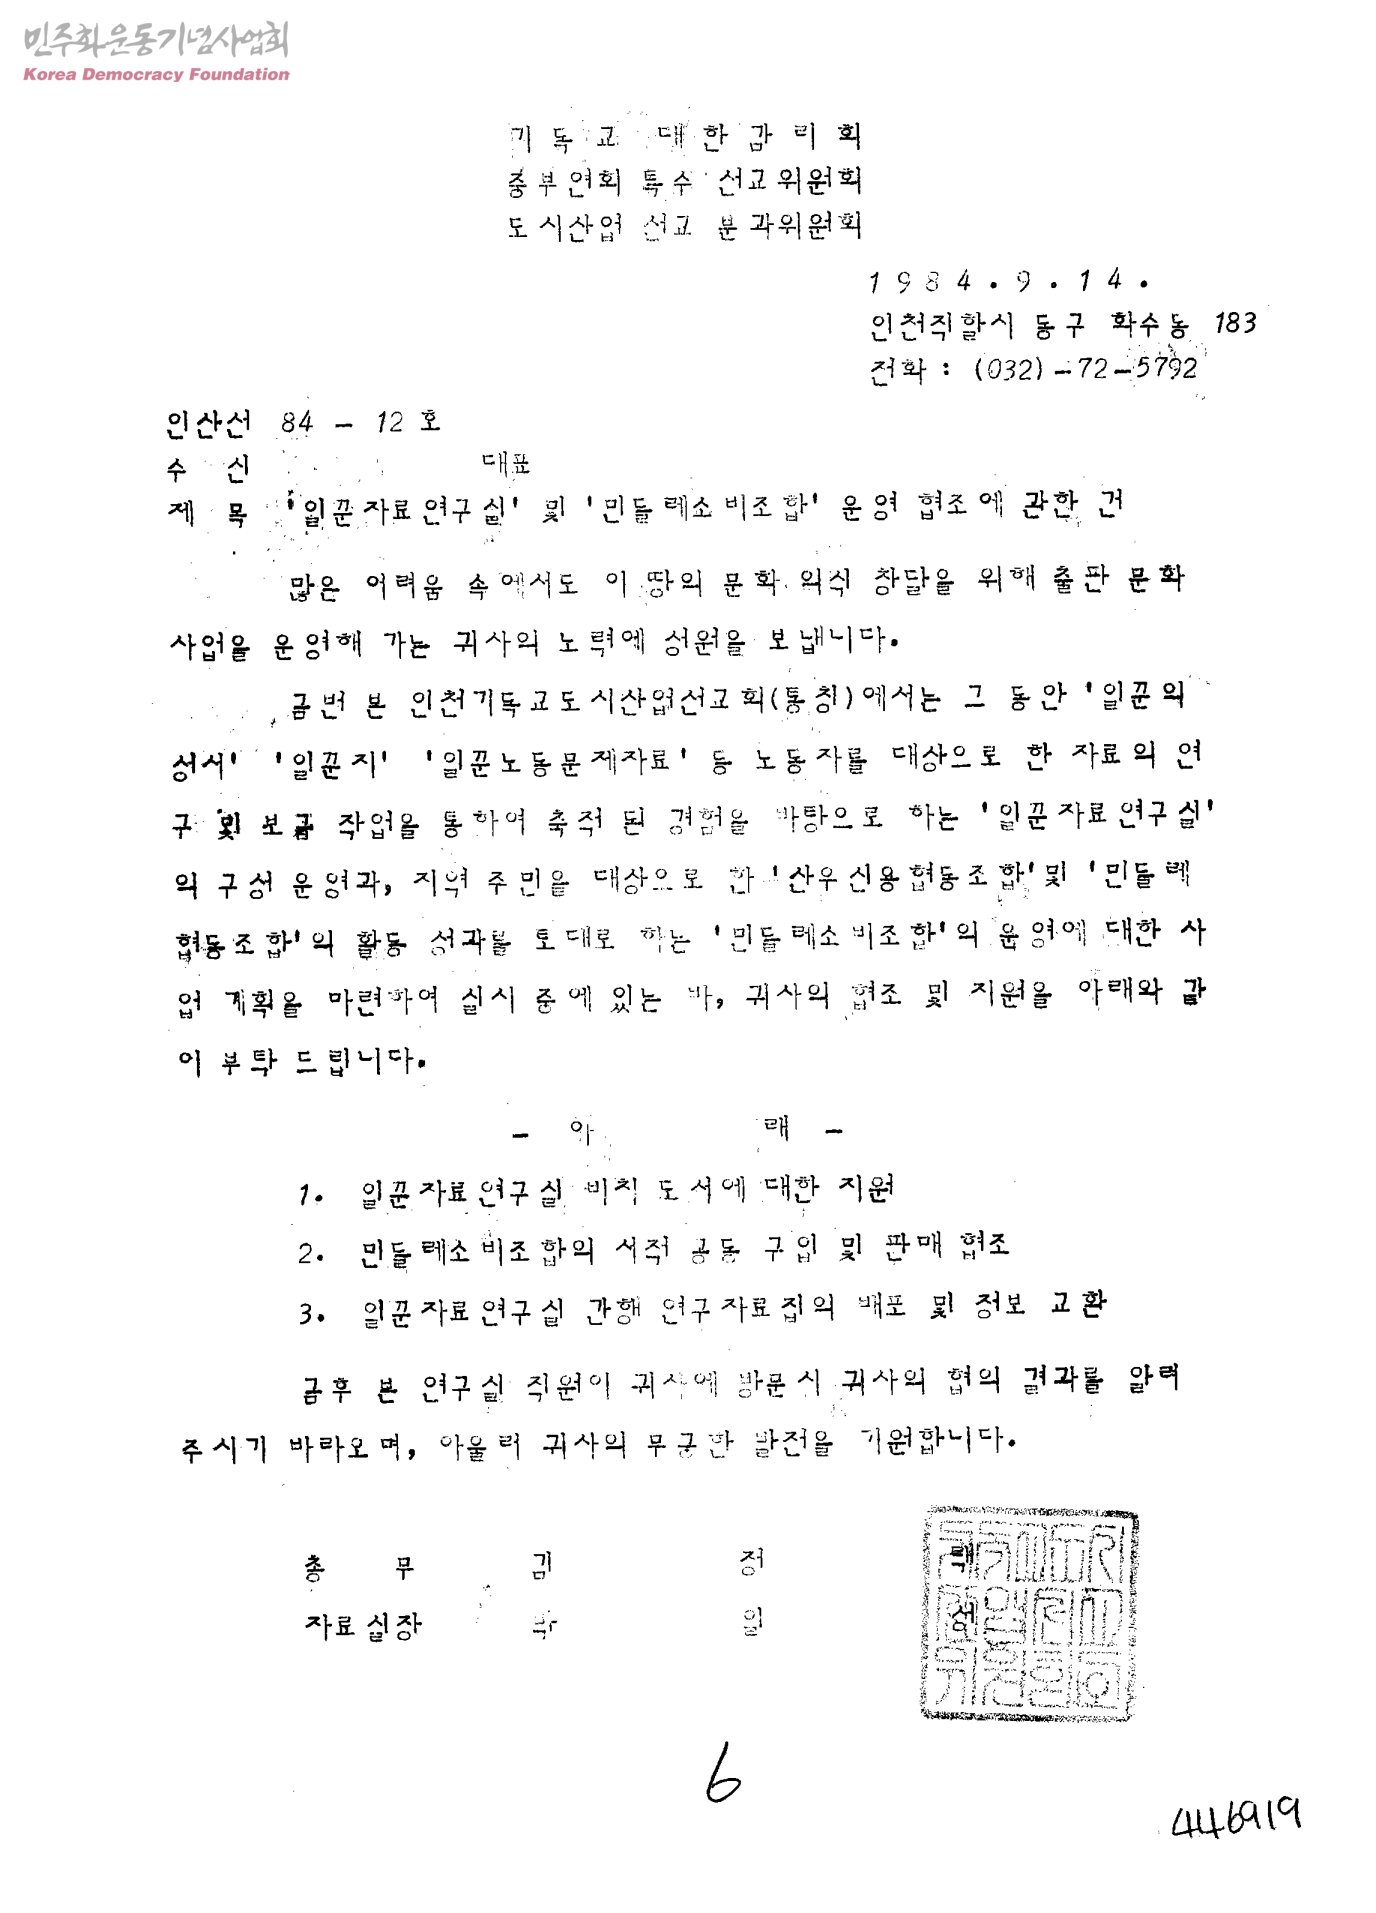 민주화운동기념사업회
Korea Democracy Foundation
기독교 대한감리회
중부연회 특수 선교위원회
도시산업 선교 분과위원회
1984.9.14.
인천직할시 동구 화수동 183
전화 : (032)-72-5792
인산선 84 - 12 호
수 신 대표
제 목 '일꾼자료연구실' 및 '민들레소비조합' 운영 협조에 관한 건
많은 어려움 속에서도 이 땅의 문화 의식 창달을 위해 출판 문화
사업을 운영해 가는 귀사의 노력에 성원을 보냅니다.
금번 본 인천기독교도시산업선교회(통칭)에서는 그 동안 '일꾼의
성서' '일꾼지' '일꾼노동문제자료' 등 노동자를 대상으로 한 자료의 연
구 및 보급 작업을 통하여 축적 된 경험을 바탕으로 하는 '일꾼자료연구실'
의 구성 운영과, 지역 주민을 대상으로 한 '산우신용협동조합' 및 '민들레
협동조합'의 활동 성과를 토대로 하는 '민들레소비조합'의 운영에 대한 사
업 계획을 마련하여 실시 중에 있는 바, 귀사의 협조 및 지원을 아래와 같
이 부탁 드립니다.
- 아 래 -
1. 일꾼자료연구실 비치 도서에 대한 지원
2. 민들레소비조합의 서적 공동 구입 및 판매 협조
3. 일꾼자료연구실 간행 연구자료집의 배포 및 정보 교환
금후 본 연구실 직원이 귀사에 방문시 귀사의 협의 결과를 알려
주시기 바라오며, 아울러 귀사의 무궁한 발전을 기원합니다.
총 무 김 정 택
자료실장 박 일 성
6
446919